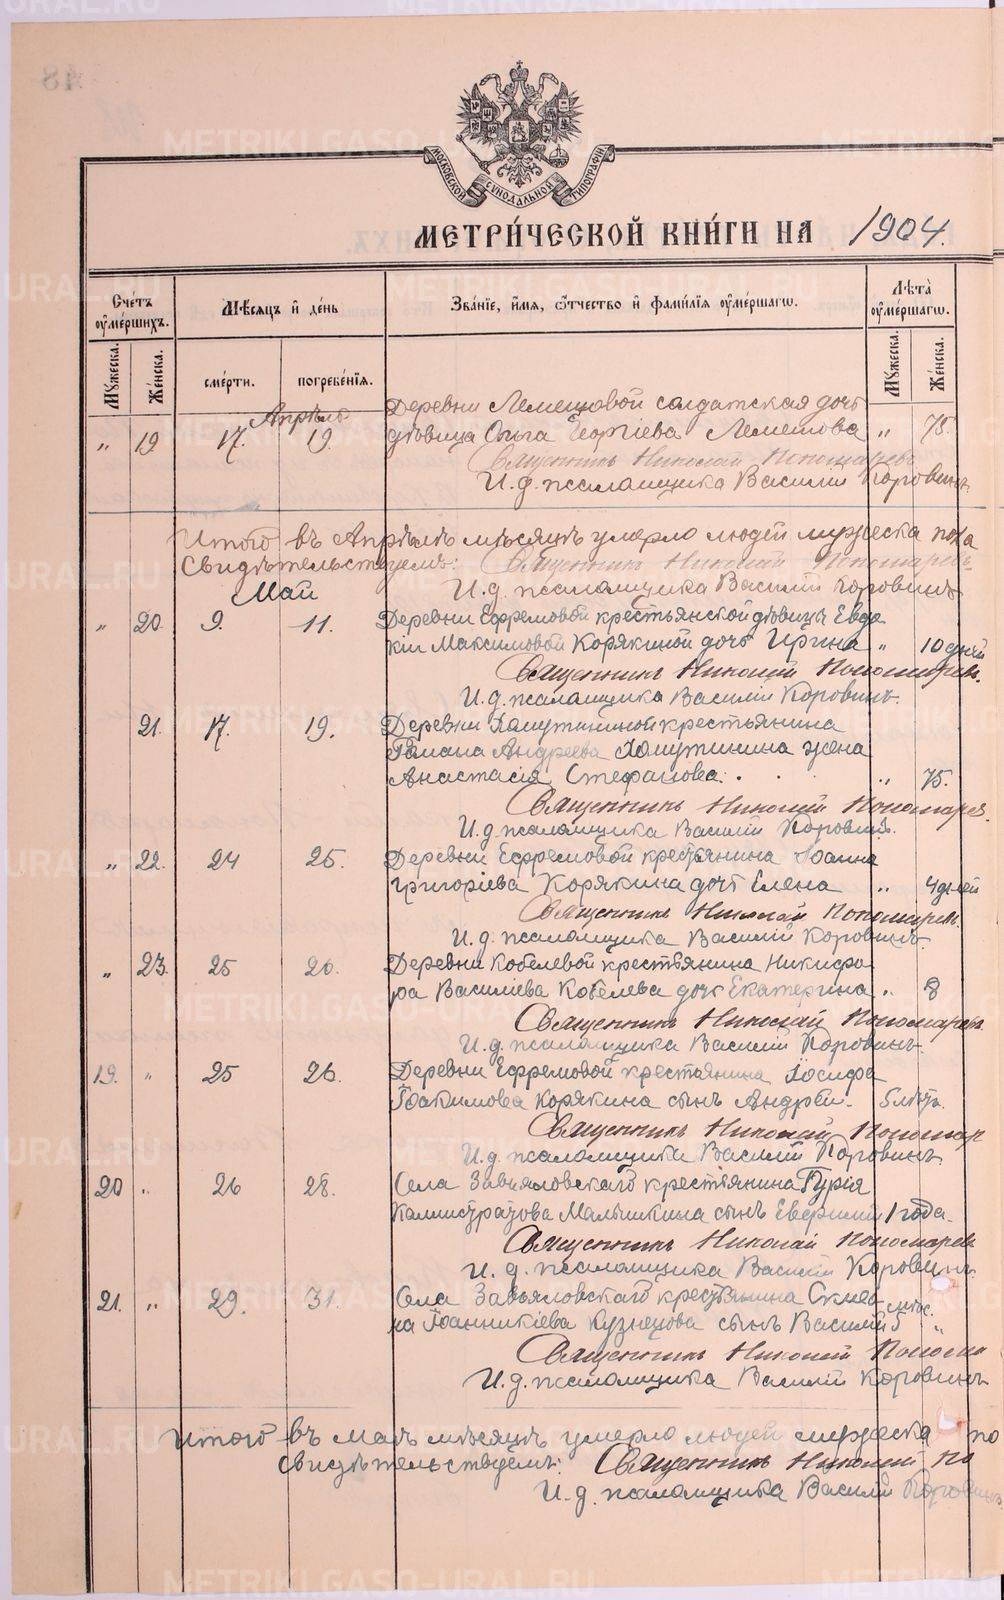 МОСКОВСКОЙ СѴНОДАЛЬНОЙ ТИПОГРАФІИ
МЕТРИ́ЧЕСКОЙ КНИ́ГИ НА 1904.
Сче́тъ ᲂу҆ме́ршихъ.
Мѣ́сяцъ и҆ де́нь
Зва́нїе, и҆́мя, ѻ҆́тчество и҆ фами́лїя ᲂу҆ме́ршагѡ.
Лѣ́та ᲂу҆ме́ршагѡ.
Му́жеска. Же́нска. сме́рти. погребе́нїя. Му́жеска. Же́нска.
Апрѣль
Деревни Лемешовой солдатская дочь
„ 19 17. 19. дѣвица Ольга Георгіева Лемешова „ 75.
Священникъ Николай Пономаревъ
И.д. псаломщика Василій Коровинъ.
Итого въ Апрѣлѣ мѣсяцѣ умерло людей мужеска пола
Свидѣтельствуемъ: Священникъ Николай Пономаревъ
Май И.д. псаломщика Василій Коровинъ
„ 20. 9. 11. Деревни Ефремовой крестьянской дѣвицы Евдо
кіи Максимовой Корякиной дочь Ирина „ 10 дней
Священникъ Николай Пономаревъ.
И.д. псаломщика Василій Коровинъ.
21. 17. 19. Деревни Хомутининой крестьянина
Романа Андреева Хомутинина жена
Анастасія Стефанова. „ 75.
Священникъ Николай Пономарев
И.д. псаломщика Василій Коровинъ.
„ 22. 24 25. Деревни Ефремовой крестьянина Іоанна
Григоріева Корякина дочь Елена „ 4 дней
Священникъ Николай Пономаревъ.
И.д. псаломщика Василій Коровинъ.
„ 23. 25 26. Деревни Кобелевой крестьянина Никифо
ра Василіева Кобелева дочь Екатерина „ 8
Священникъ Николай Пономаревъ
И.д. псаломщика Василій Коровинъ.
19. „ 25 26. Деревни Ефремовой крестьянина Іосифа
Іоакимова Корякина сынъ Андрей. 5 лѣтъ.
Священникъ Николай Пономар
И.д. псаломщика Василій Коровинъ.
20 „ 26 28. Села Завьяловскаго крестьянина Гурія
Калистратова Малышкина сынъ 1 года.
Священникъ Николай Пономарев
И.д. псаломщика Василій Коровинъ.
21. „ 29. 31. Села Завьяловскаго крестьянина
на Іоанникіева Кузнецова сынъ Василій 5 мѣс. „
Священникъ Николай Поно
И.д. псаломщика Василій Коровинъ
Итого въ Маѣ мѣсяцѣ умерло людей мужеска по
Свидѣтельствуемъ: Священникъ Николай По
И.д. псаломщика Василій Коровинъ.
METRIKI.GASO-URAL.RU